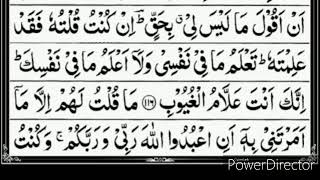 اَنْ اَقُوْلَ مَا لَيْسَ لِىْ ۤ بِحَقٍّ ؕ اِنْ كُنْتُ قُلْتُهٗ فَقَدْ
عَلِمْتَهٗ ؕ تَعْلَمُ مَا فِىْ نَفْسِىْ وَلَاۤ اَعْلَمُ مَا فِىْ نَفْسِكَ ؕ
اِنَّكَ اَنْتَ عَلَّامُ الْغُيُوْبِ ﴿۱۱۶﴾ مَا قُلْتُ لَهُمْ اِلَّا مَاۤ
اَمَرْتَنِىْ بِهٖۤ اَنِ اعْبُدُوا اللّٰهَ رَبِّىْ وَرَبَّكُمْ ۚ وَكُنْتُ
PowerDirector